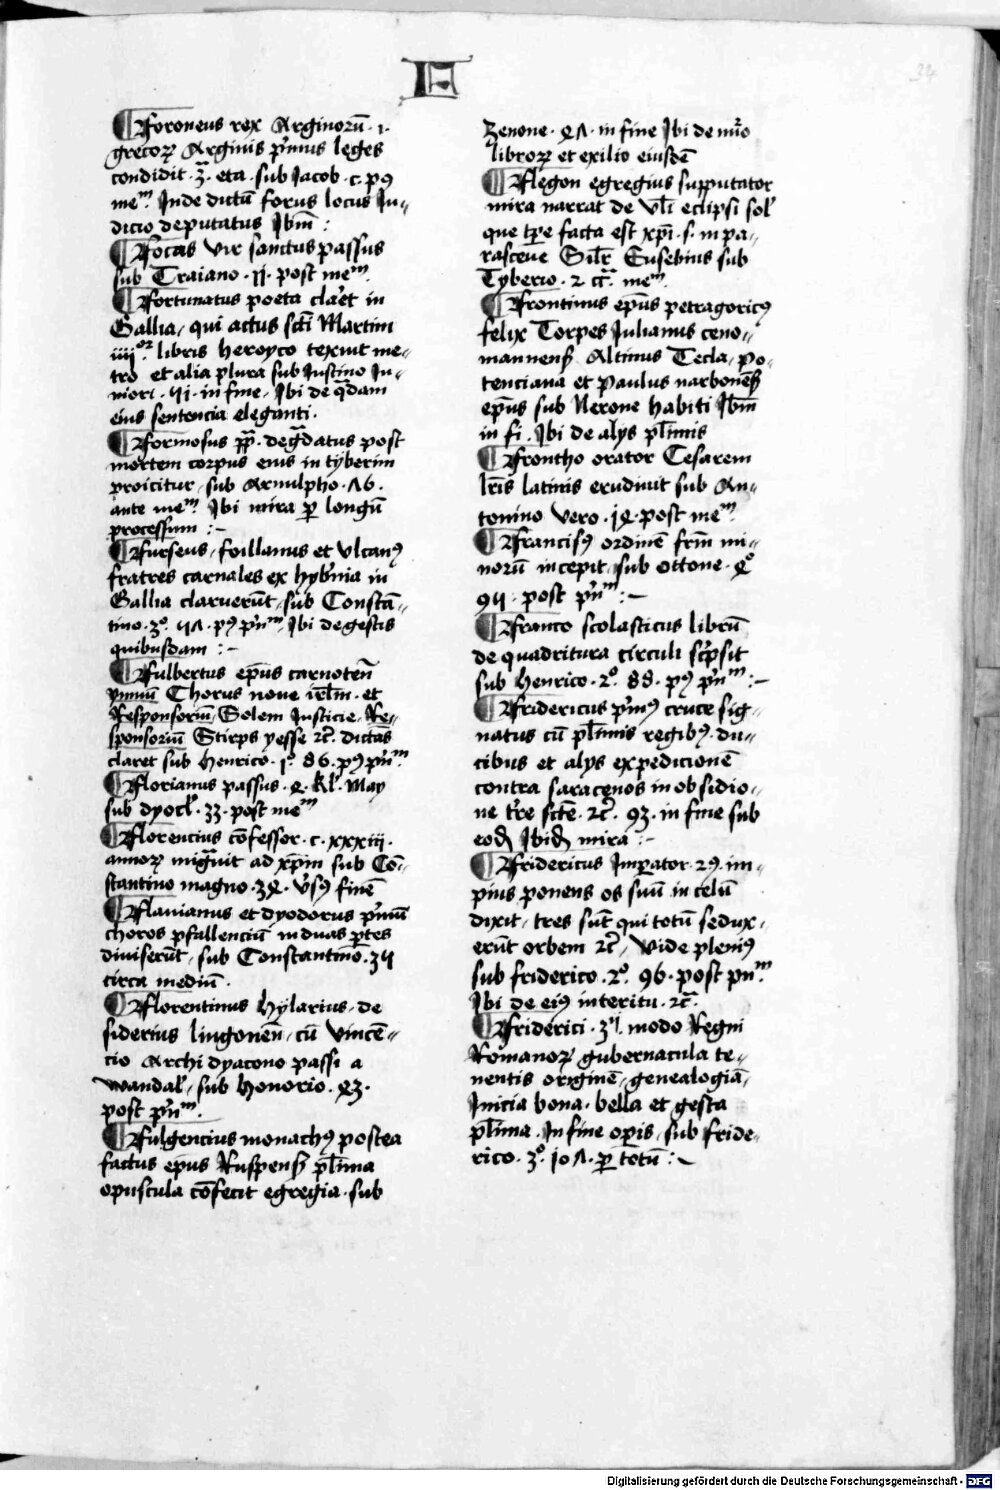 F
34
¶ Foroneus rex Arginorū · 1 ·
grecoꝝ Arginis p̾mus leges
condidit · 3 · eta · sub Jacob · c · pꝰ
meᵐ Inde dictū forus locus Ju-
dicio deputatus Jbm̄ :
¶ Focas vir sanctus passus
sub Traiano · 11 · post meᵐ
¶ Fortunatus poeta claꝛet in
Gallia, qui actus scti Martini
iiijᵒʳ libris heroyco texuit me-
tro et alia plura sub Justino Ju-
niori · 42 · in fine · Ibi de q̄dam
eius sentencia eleganti ·
¶ Formosus pp̄ · deg̃datus post
mortem corpus eius in tyberim
proicitur, sub Arnulpho · Λ6 ·
ante meᵐ Ibi mira ꝑ longū
processum :-
¶ Furseus, foillanus et vlcanꝰ
fratres carnales ex hyb̾nia in
Gallia claruerūt, sub Constā-
tino · 3º · 4Λ · pꝰ p̾nᵐ Ibi de gestis
quibusdam :-
¶ Fulbertus ep̄us carnoteñ
ymnū Chorus noue ierl̄m · et
Responsoriū, Solem Justicie, Re-
sponsoriū Stirps yesse ⁊c̄ · dictās
claret sub Henrico · 1º · 86 · pꝰ p̾nᵐ
¶ Florianus passus · 4 · kl̄ · May
sub dyocl̄ · 33 · post meᵐ
¶ Florencius cōfessor · c · xxxiij ·
annoꝝ mig̃uit ad xp̄m sub Cō-
stantino magno · 34 · v̾sꝰ finē
¶ Flauianus et dyodorus p̾mū
choros psallenciū in duas ꝑtes
diuiserūt, sub Constantino · 34
circa mediū ·
¶ Florentinus Hylarius · de
siderius lingonēn, cū vincē-
cio Archidyacono passi a
wandal̄, sub Honorio · 43 ·
post p̾nᵐ ·
¶ Fulgencius monachꝰ postea
factus ep̄us Ruspenß pl̄ima
opuscula cōfecit egregia · sub
Zenone · 4Λ · in fine Ibi de mīo
libroꝝ et exilio eiusdē
¶ Flegon egregius supputator
mira narrat de vl̄i eclipsi sol̄
que tp̄e facta est xp̄i · s · in pa-
rasceue Sil̄r Eusebius sub
Tyberio · 2 circa meᵐ
¶ Frontinus ep̄us petragoricꝰ
felix Torpes Julianus ceno-
mannenß Altinus Tecla, po-
tenciana et Paulus narbonēß
ep̄us sub Nerone habiti Jbm̄
in fi · Ibi de alys pl̄imis
¶ Frontho orator Cesarem
lr̄is latinis erudiuit sub An-
tonino vero · 14 · post meᵐ
¶ Franciscꝰ ordinē frm̄ mi-
norū incepit, sub Ottone · 4º
92 · post p̾nᵐ :-
¶ Franco scolasticus librū
de quadritura circuli sc̾psit
sub Henrico · 2º · 88 · pꝰ p̾nᵐ :-
¶ Fridericus p̾mꝰ cruce sig-
natus cū pl̄imis regibꝰ · du-
cibus et alys expedicionē
contra saracenos in obsidio-
ne t̾re sctē · ⁊c̄ · 93 · in fine sub
eod̄ Ibid̄ mira :-
¶ Fridericus Imꝑator · 2ꝰ · im-
pius ponens os suū in celū
dixit, tres sūt qui totū sedux-
erūt orbem ⁊c̄, Vide pleniꝰ
sub friderico · 2º · 96 · post pn̄ᵐ
Ibi de eiꝰ interitu · ⁊c̄ ·
¶ Friderici · 3ⁱ · modo Regni
Romanoꝝ gubernacula te-
nentis originē, genealogiā,
Inicia bona · bella et gesta
pl̄ima · In fine oꝑis, sub fride-
rico · 3º · 10Λ · ꝑ totū :-
Digitalisierung gefördert durch die Deutsche Forschungsgemeinschaft · DFG